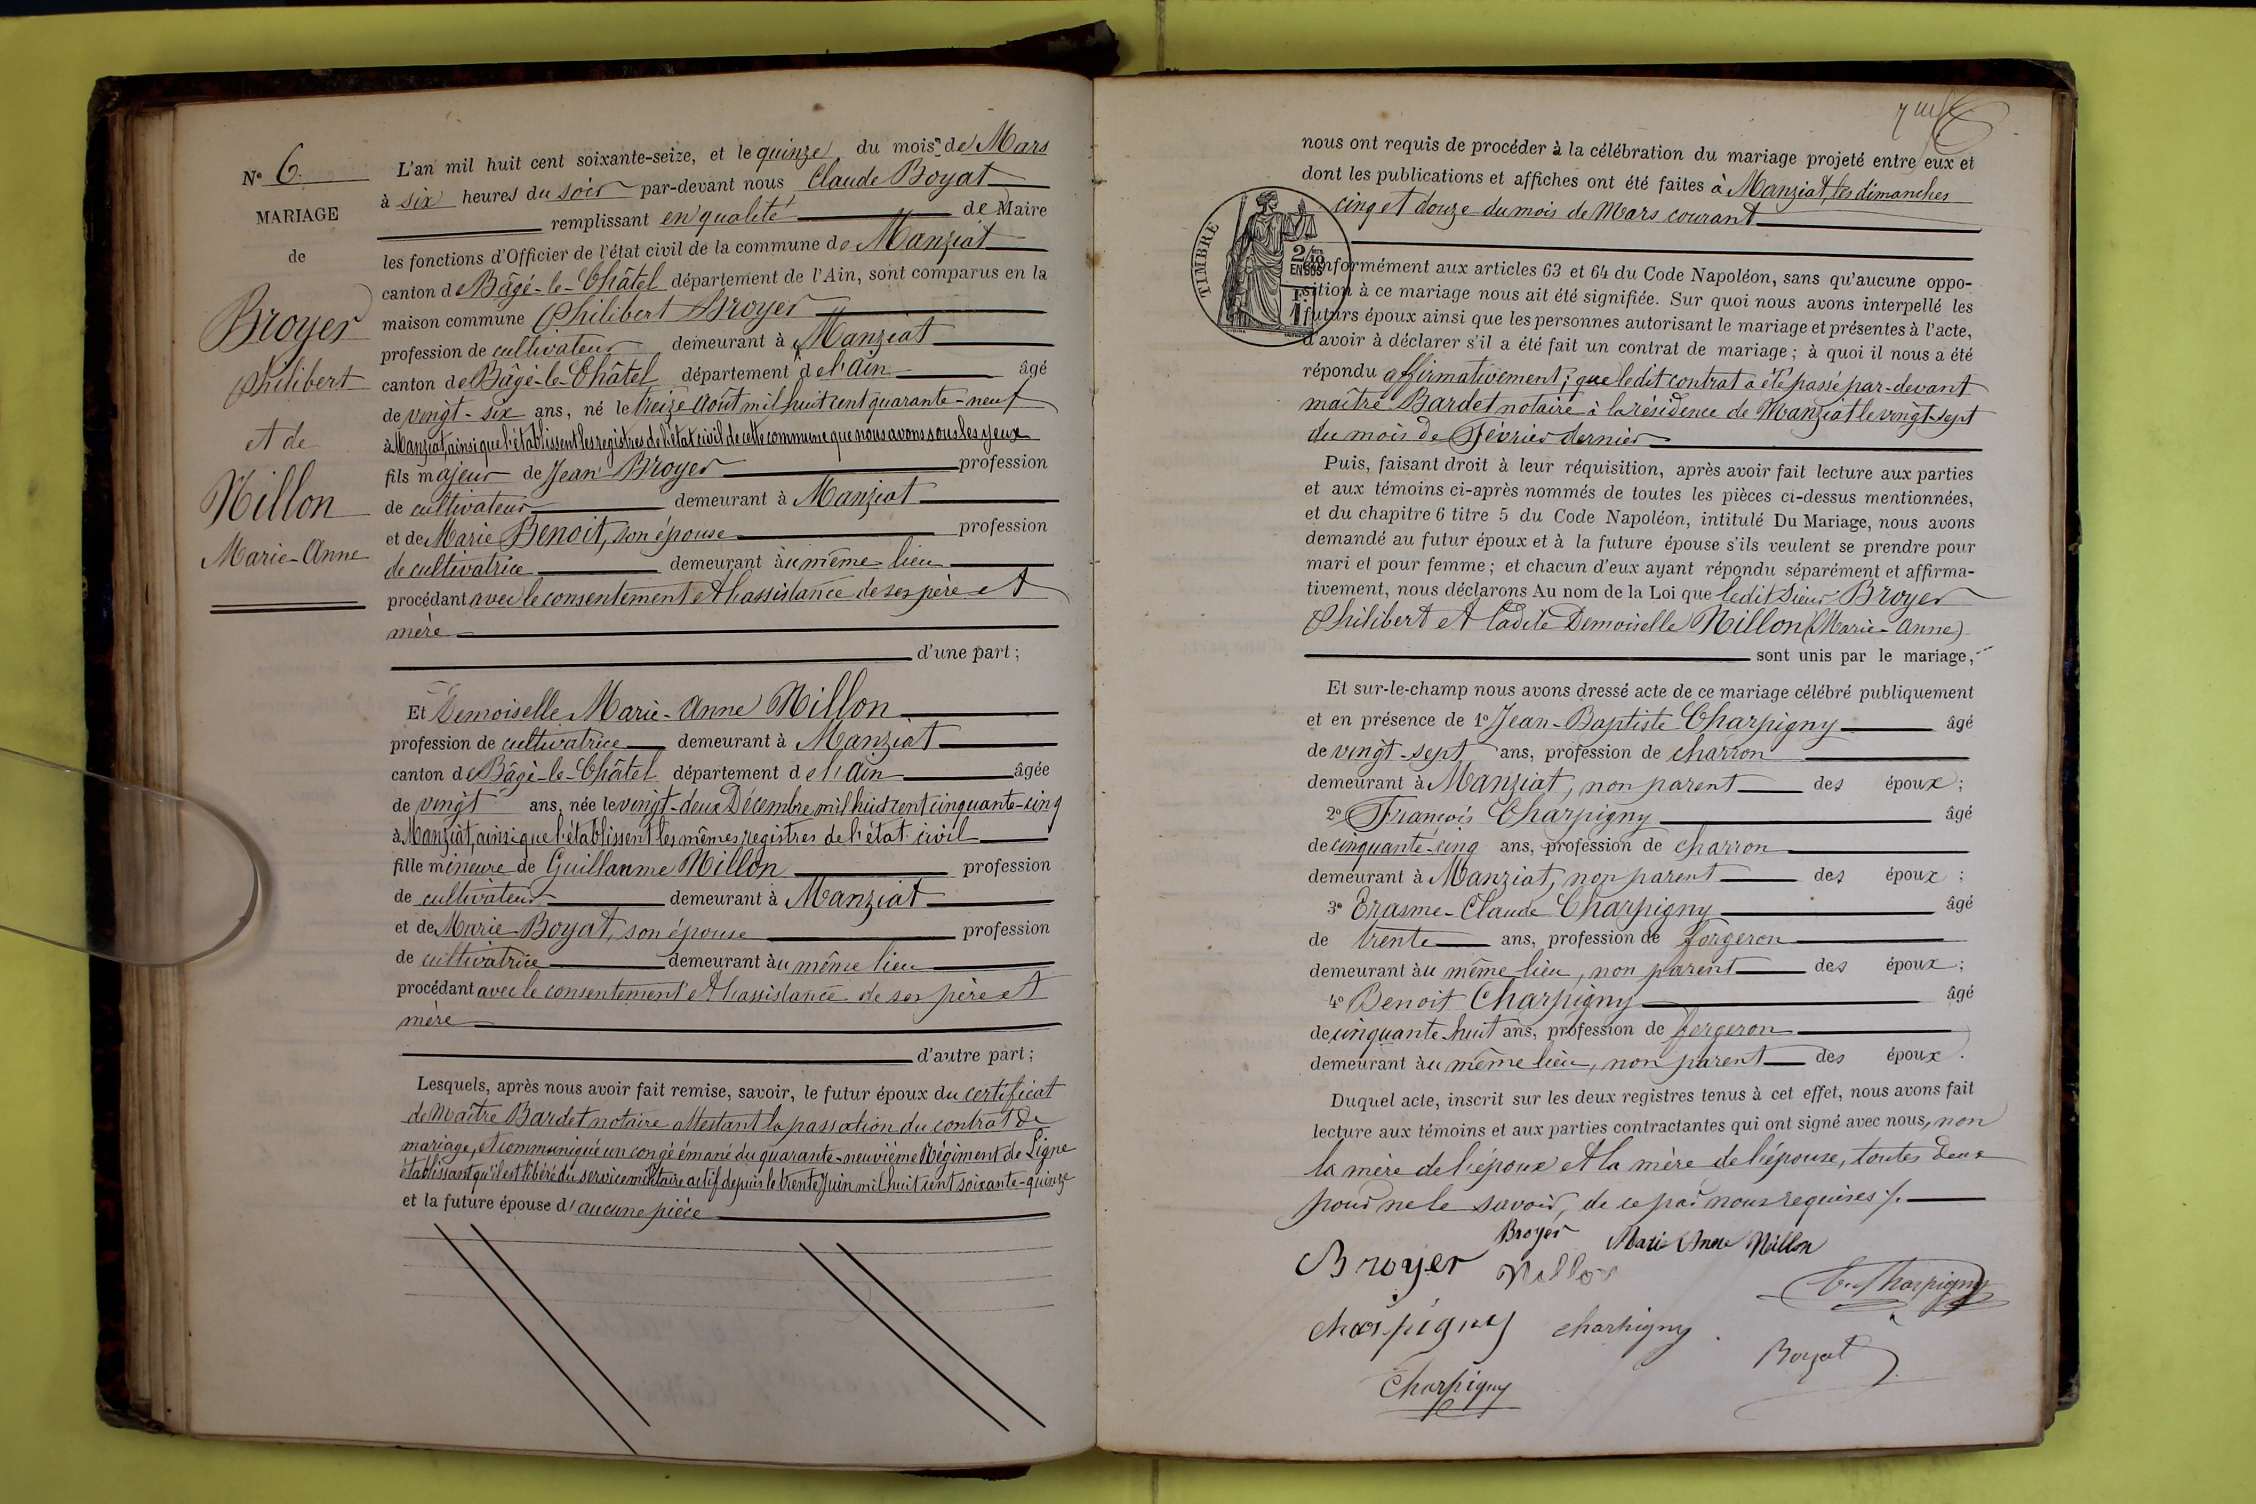 N° 6.
MARIAGE
de
Broyer
Philibert
et de
Nillon
Marie-Anne
L'an mil huit cent soixante-seize, et le quinze du mois de Mars
à six heures du soir par-devant nous Claude Boyat
remplissant en qualité de Maire
les fonctions d'Officier de l'état civil de la commune de Manziat
canton de Bâgé-le-Châtel département de l'Ain, sont comparus en la
maison commune Philibert Broyer
profession de cultivateur demeurant à Manziat
canton de Bâgé-le-Châtel département de l'Ain âgé
de vingt-six ans, né le treize août mil huit cent quarante-neuf
à Manziat, ainsi que l'établissent les registres de l'état civil de cette commune que nous avons sous les yeux
fils majeur de Jean Broyer profession
de cultivateur demeurant à Manziat
et de Marie Benoit, son épouse profession
de cultivatrice demeurant au même lieu
procédant avec le consentement et l'assistance de ses père et
mère
d'une part;
Et Demoiselle Marie-Anne Nillon
profession de cultivatrice demeurant à Manziat
canton de Bâgé-le-Châtel département de l'Ain âgée
de vingt ans, née le vingt-deux Décembre mil huit cent cinquante-cinq
à Manziat, ainsi que l'établissent les mêmes registres de l'état civil
fille mineure de Guillaume Nillon profession
de cultivateur demeurant à Manziat
et de Marie Boyat, son épouse profession
de cultivatrice demeurant au même lieu
procédant avec le consentement et l'assistance de ses père et
mère
d'autre part;
Lesquels, après nous avoir fait remise, savoir, le futur époux du certificat
de Maître Bardet notaire attestant la passation du contrat de
mariage, et communiqué un congé émané du quarante-neuvième Régiment de Ligne
établissant qu'il est libéré du service militaire actif depuis le trente Juin mil huit cent soixante-quinze
et la future épouse d'aucune pièce
nous ont requis de procéder à la célébration du mariage projeté entre eux et
dont les publications et affiches ont été faites à Manziat, les dimanches
cinq et douze du mois de Mars courant
TIMBRE
2/10
EN SUS
1F
conformément aux articles 63 et 64 du Code Napoléon, sans qu'aucune oppo-
sition à ce mariage nous ait été signifiée. Sur quoi nous avons interpellé les
futurs époux ainsi que les personnes autorisant le mariage et présentes à l'acte,
d'avoir à déclarer s'il a été fait un contrat de mariage; à quoi il nous a été
répondu affirmativement; que ledit contrat a été passé par-devant
maître Bardet notaire à la résidence de Manziat le vingt-sept
du mois de Février dernier
Puis, faisant droit à leur réquisition, après avoir fait lecture aux parties
et aux témoins ci-après nommés de toutes les pièces ci-dessus mentionnées,
et du chapitre 6 titre 5 du Code Napoléon, intitulé Du Mariage, nous avons
demandé au futur époux et à la future épouse s'ils veulent se prendre pour
mari et pour femme; et chacun d'eux ayant répondu séparément et affirma-
tivement, nous déclarons Au nom de la Loi que ledit Sieur Broyer
Philibert et ladite Demoiselle Nillon (Marie-Anne)
sont unis par le mariage,
Et sur-le-champ nous avons dressé acte de ce mariage célébré publiquement
et en présence de 1° Jean-Baptiste Charpigny âgé
de vingt-sept ans, profession de charron
demeurant à Manziat, non parent des époux;
2° François Charpigny âgé
de cinquante-cinq ans, profession de charron
demeurant à Manziat, non parent des époux;
3° Erasme-Claude Charpigny âgé
de trente ans, profession de forgeron
demeurant au même lieu, non parent des époux;
4° Benoit Charpigny âgé
de cinquante-huit ans, profession de forgeron
demeurant au même lieu, non parent des époux.
Duquel acte, inscrit sur les deux registres tenus à cet effet, nous avons fait
lecture aux témoins et aux parties contractantes qui ont signé avec nous, non
la mère de l'époux et la mère de l'épouse, toutes deux
pour ne le savoir, de ce par nous requises /.
Broyer Marie Anne Nillon
Broyer Nillon
Charpigny
charpigny charpigny
Boyat
Charpigny